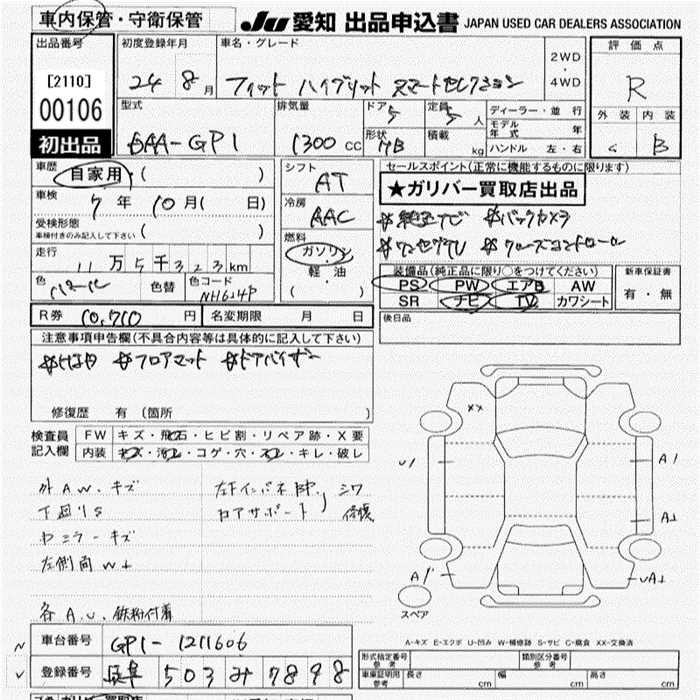 車内保管・守衛保管 JU 愛知 出品申込書 JAPAN USED CAR DEALERS ASSOCIATION
出品番号 初度登録年月 車名・グレード 2WD・4WD 評価点
[2110] 24 8月 フィット ハイブリット スマートセレクション R
00106 型式 排気量 ドア 5 定員 5人 ディーラー・並行 外装 内装
初出品 DAA-GP1 1300cc 形状 HB 積載 kg モデル年式 年 ハンドル 左・右 C B
車歴 自家用・( ) シフト AT セールスポイント(正常に機能するものに限ります)
車検 7年 10月( 日) 冷房 AAC ★ガリバー買取店出品
受検形態 車検付きのみ記入して下さい ( ) 燃料 ガソリン ※純正ナビ ※バックカメラ
走行 11万5千323km 軽油 ※ワンセグTV ※クルーズコントロール
色 パール 色替 色コード NH624P ( )
装備品(純正品に限り○をつけてください) 新車保証書
PS PW エアB AW 有・無
SR ナビ TV カワシート
R券 10,710円 名変期限 月 日 後日品
注意事項申告欄(不具合内容等は具体的に記入して下さい)
※フロアマット ※ドアバイザー
修復歴 有 (箇所 )
検査員記入欄 FW キズ・飛石・ヒビ割・リペア跡・X要
内装 キズ・汚レ・コゲ・穴・スレ・キレ・破レ
外AW.キズ 左下インパネ部. シワ
下廻りS コアサポート, 修複
ドミラーキズ
左側面W⊥
各A.U. 鉄粉付着
XX
U1 A1
A⊥
A1 UA⊥
スペア
A-キズ E-エクボ U-凹み W-補修跡 S-サビ C-腐食 XX-交換済
車台番号 GP1-1211606
形式指定番号 参考 類別区分番号 参考
登録番号 岐阜 503 み 7898
車庫証明用 参考 長さ cm 幅 cm 高さ cm